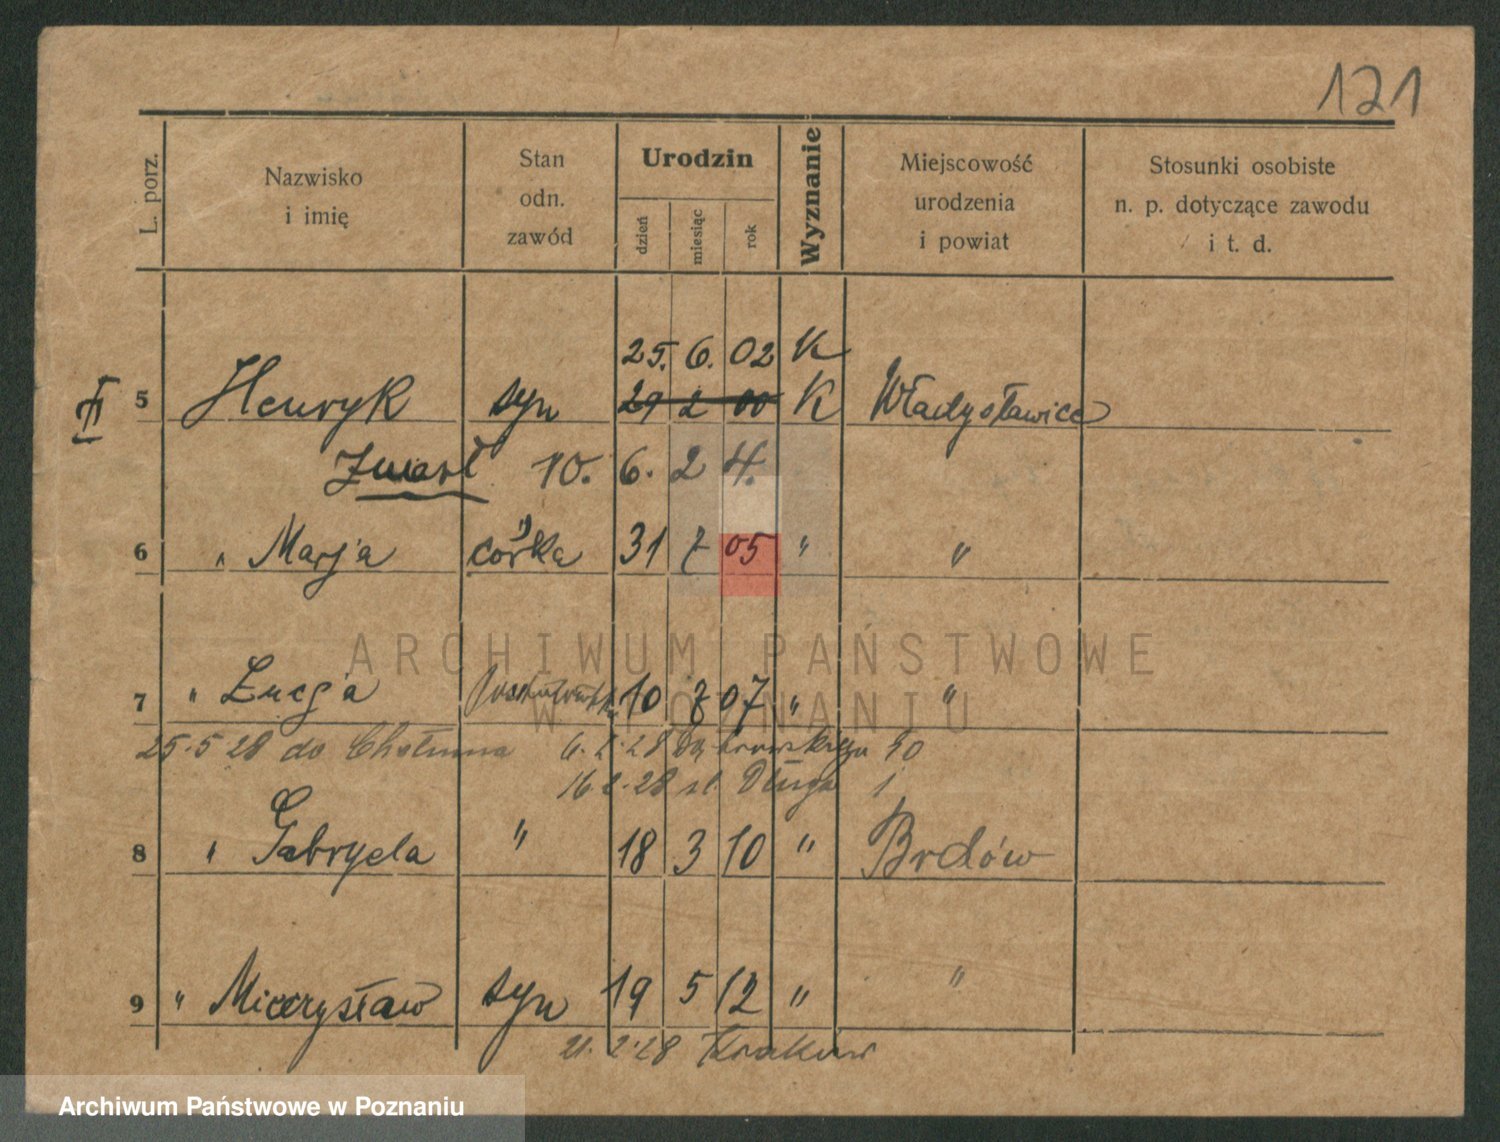 121
L. porz.
Nazwisko i imię
Stan odn. zawód
Urodzin
dzień
miesiąc
rok
Wyznanie
Miejscowość urodzenia i powiat
Stosunki osobiste n. p. dotyczące zawodu i t. d.
25. 6. 02 K
II 5 Henryk syn 29 2 00 K Władysławice
Zmarł 10. 6. 24.
6 " Marja córka 31 7 05 " "
7 " Łucja 10 07 " "
25.5.28 do Chełmna 28 Dąbrowskiego
16 2.28 ul. Długa 1
8 " Gabryela " 18 3 10 " Brdów
9 " Mieczysław syn 19 5 12 " "
21.2.28 Kraków
ARCHIWUM PAŃSTWOWE
W POZNANIU
Archiwum Państwowe w Poznaniu